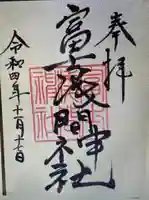 奉拝
富士浅間神社
令和四年十二月十一日